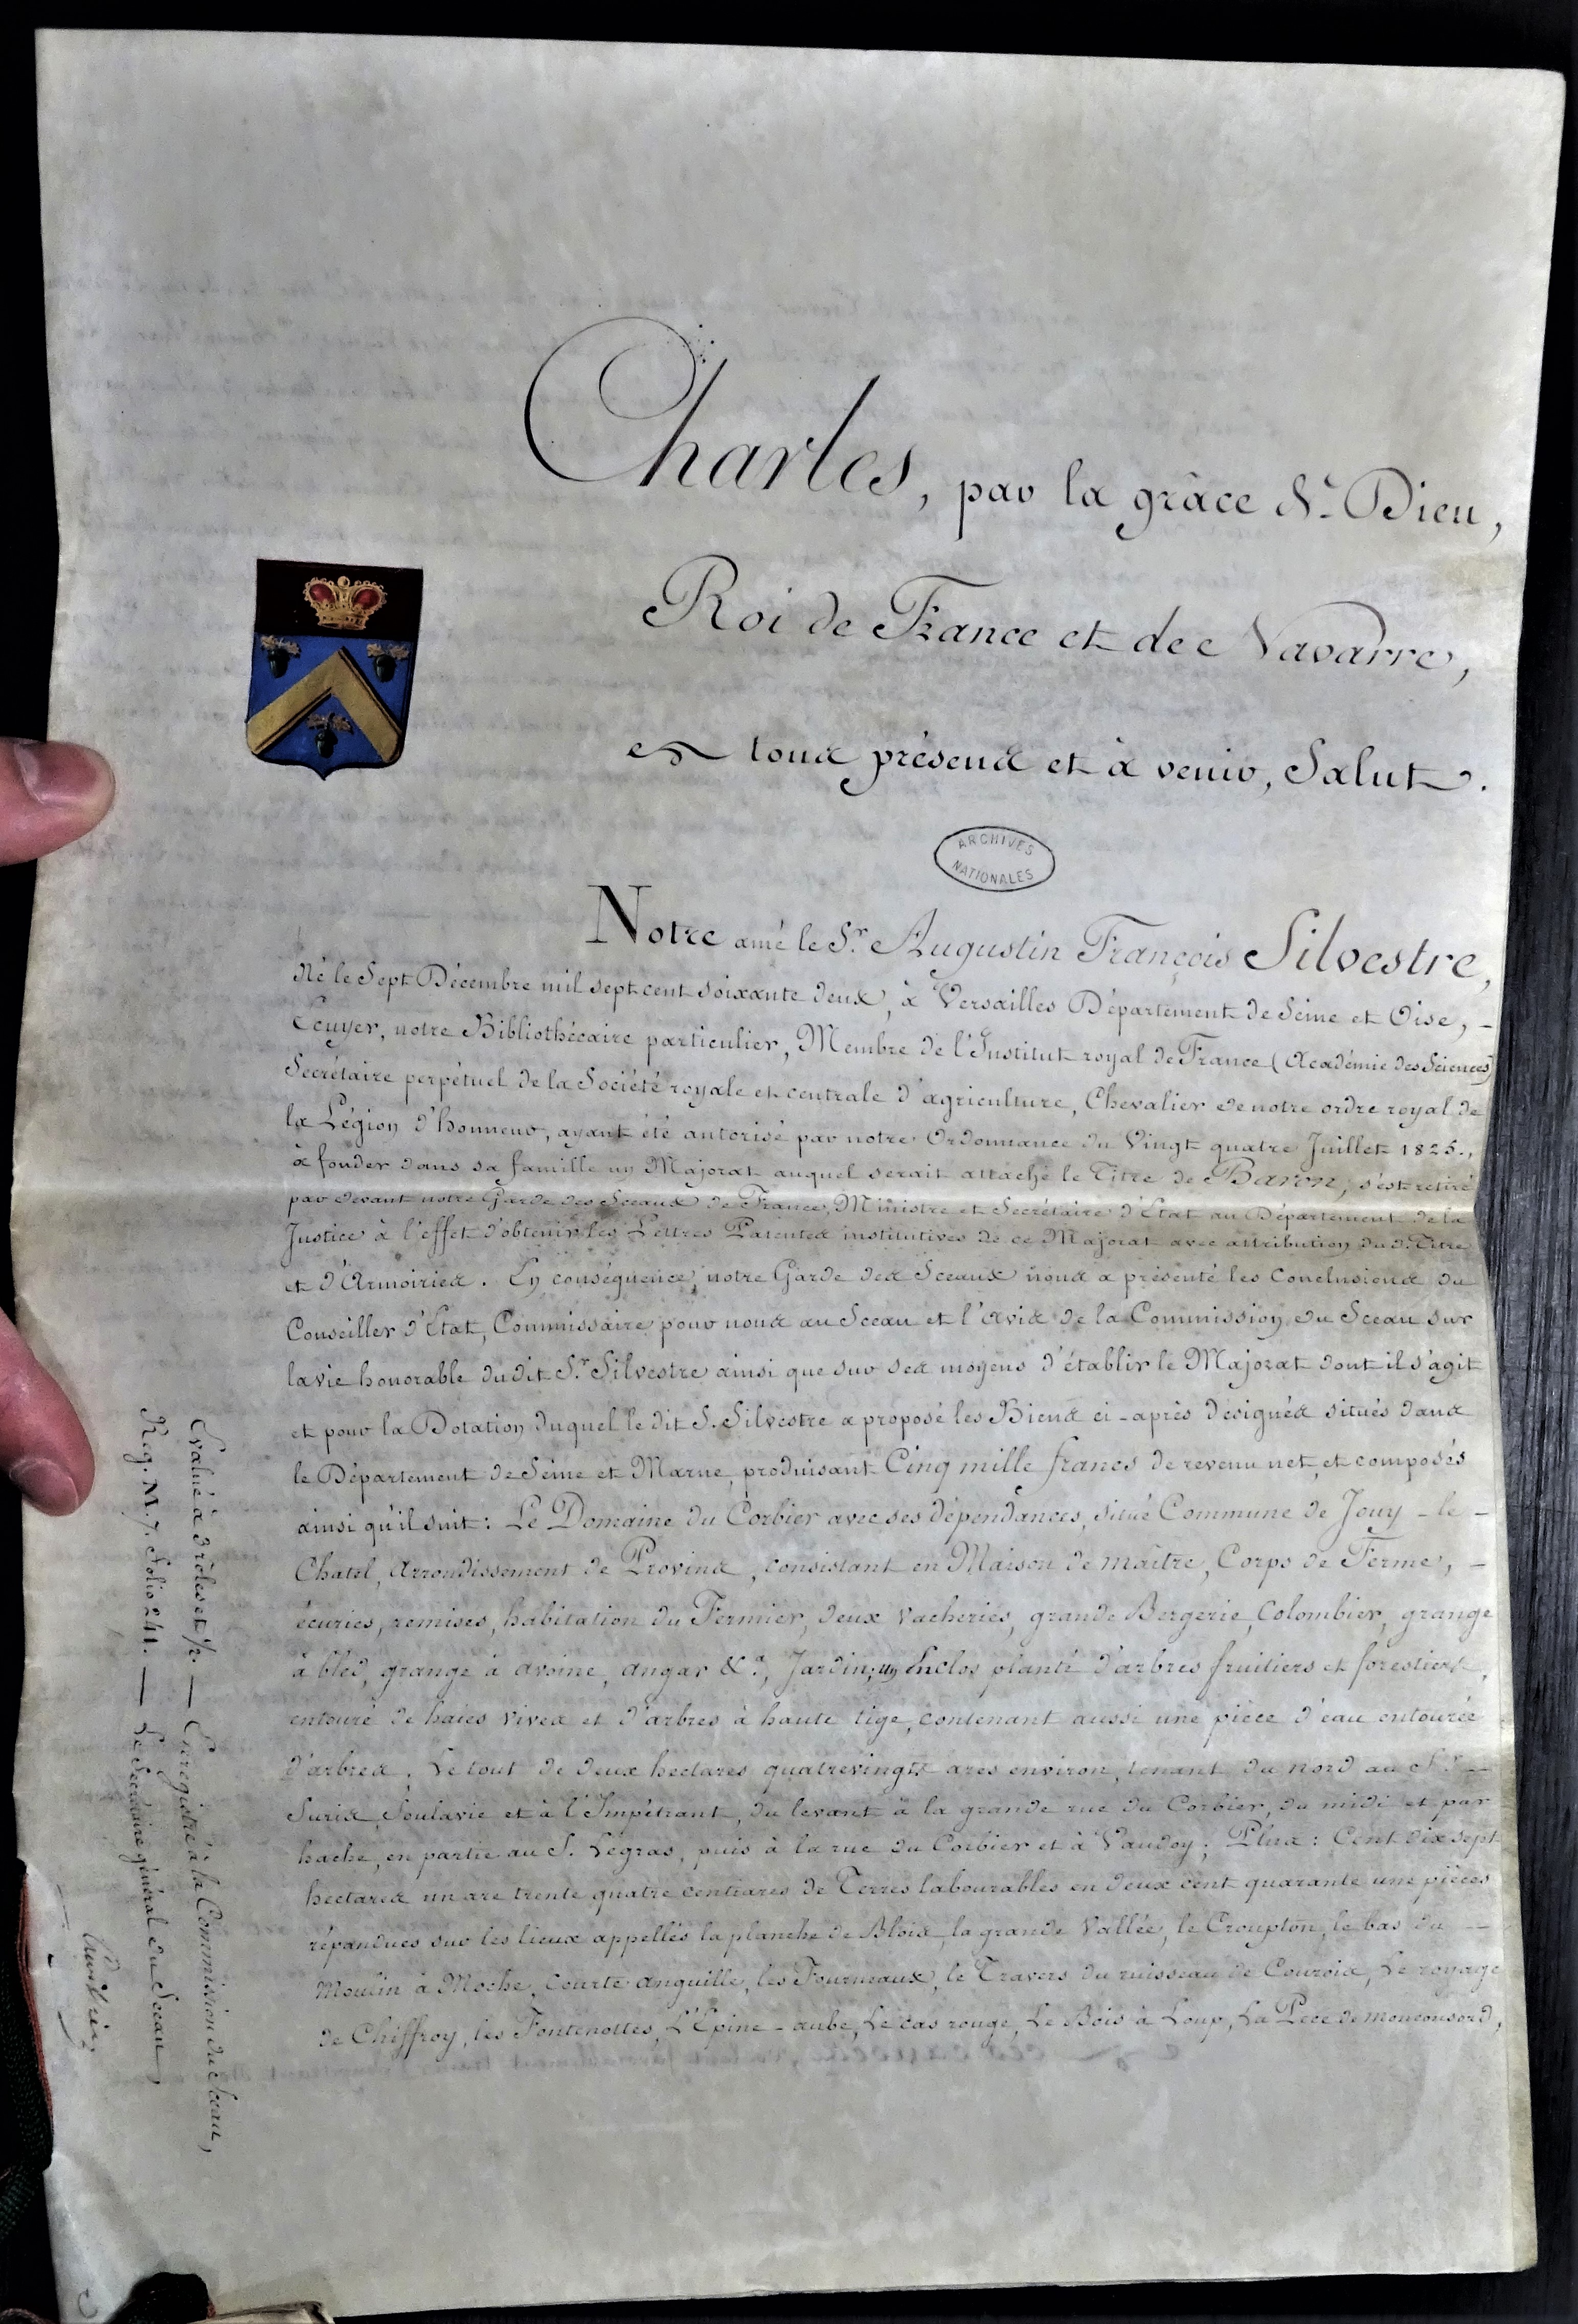 Charles, par la grâce de Dieu,
Roi de France et de Navarre,
à tous présens et à venir, Salut.
ARCHIVES
NATIONALES
Notre amé le Sr. Augustin François Silvestre,
né le Sept Décembre mil sept cent soixante deux, à Versailles Département de Seine et Oise, -
Ecuyer, notre Bibliothécaire particulier, Membre de l'Institut royal de France (Académie des Sciences)
Secrétaire perpétuel de la Société royale et centrale d'agriculture, Chevalier de notre ordre royal de
la Légion d'honneur, ayant été autorisé par notre Ordonnance du Vingt quatre Juillet 1825.,
à fonder dans sa famille un Majorat auquel serait attaché le Titre de Baron, s'est retiré
par devant notre Garde des Sceaux de France, Ministre et Secrétaire d'Etat au Département de la
Justice à l'effet d'obtenir les Lettres Patentes institutives de ce Majorat avec attribution du d. Titre
et d'Armoiries. En conséquence, notre Garde des Sceaux nous a présenté les Conclusions du
Conseiller d'Etat, Commissaire pour nous au Sceau et l'avis de la Commission du Sceau sur
la vie honorable du dit Sr. Silvestre ainsi que sur ses moyens d'établir le Majorat dont il s'agit
et pour la Dotation duquel le dit S. Silvestre a proposé les Biens ci-après désignés situés dans
le Département de Seine et Marne, produisant Cinq mille francs de revenu net, et composés
ainsi qu'il suit: Le Domaine du Corbier avec ses dépendances, situé Commune de Jouy-le-
Chatel, Arrondissement de Provins, consistant en Maison de maître, Corps de Ferme, -
écuries, remises, habitation du Fermier, deux Vacheries, grande Bergerie, Colombier, grange
à bled, grange à avoine, angar &a, Jardin; un Enclos planté d'arbres fruitiers et forestiers,
entouré de haies vives et d'arbres à haute tige, contenant aussi une pièce d'eau entourée
d'arbres. Le tout de deux hectares quatrevingts ares environ, tenant du nord au Sr. -
Suris, Soulavie et à l'Impétrant, du levant à la grande rue du Corbier, du midi et par
hache, en partie au S. Légras, puis à la rue du Corbier et à Vaudoy; Plus: Cent dix sept
hectares un are trente quatre centiares de Terres labourables en deux cent quarante une pièces
répandues sur les lieux appellés la planche de Blois, la grande Vallée, le Croupton, le bas du -
Moulin à Moche, Courte anguille, les Fourneaux, le Travers du ruisseau de Courois, Le royage
de Chiffroy, les Fontenottes, L'Epine-aube, Le cas rouge, Le Bois à Loup, La Pece de
Evalué à 3 rôles et 1/2. — Enregistré à la Commission du Sceau,
Reg. M. 7. Folio 241. — Le Secrétaire général du Sceau,